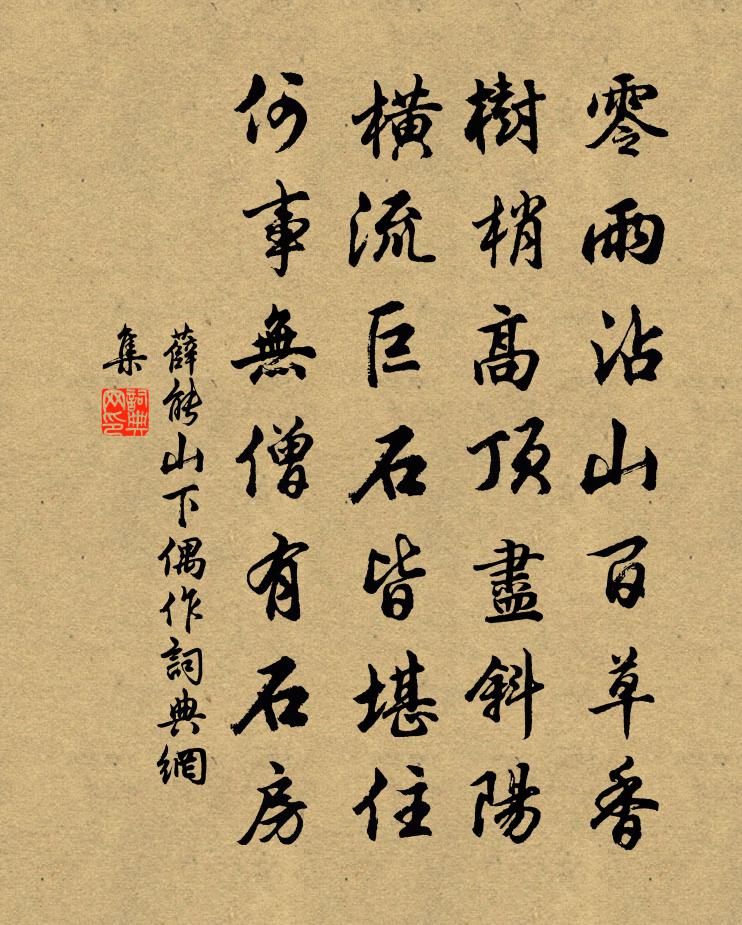 零雨沾山百草香
樹梢高頂盡斜陽
橫流巨石皆堪住
何事無僧有石房
薛能山下偶作詞典網
集
詞典
网印